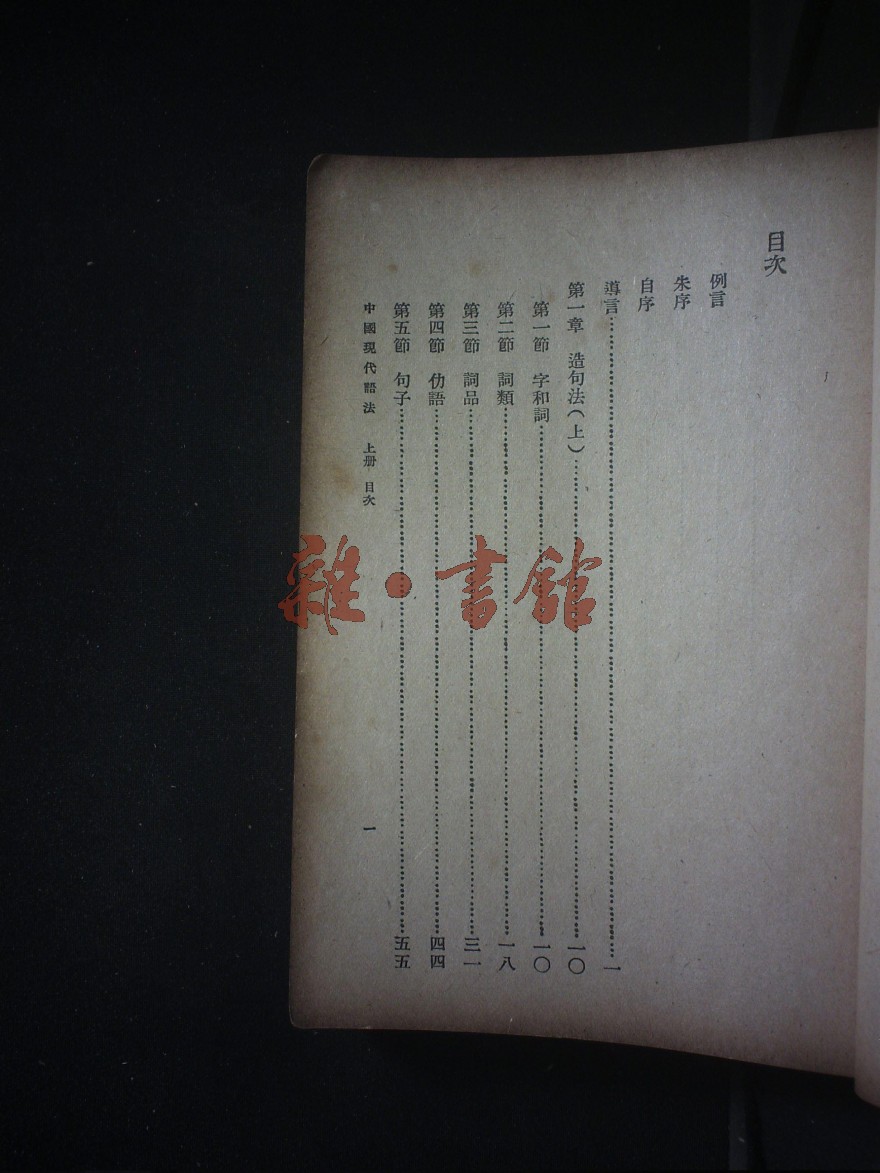 目次
例言
朱序
自序
導言……一
第一章 造句法(上)……一〇
第一節 字和詞……一〇
第二節 詞類……一八
第三節 詞品……三一
第四節 仂語……四四
第五節 句子……五五
中國現代語法 上册 目次 一
雜·書館